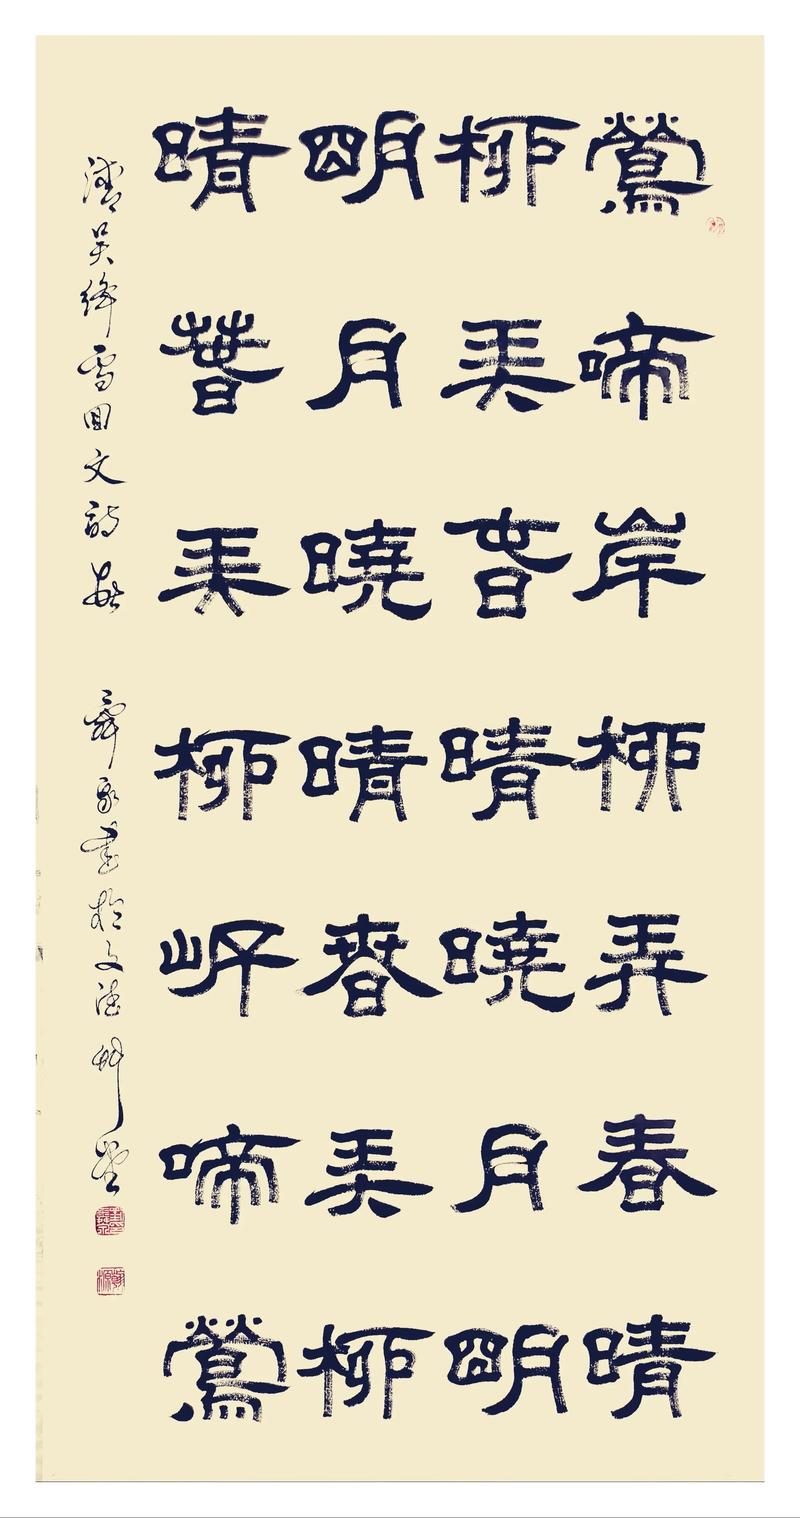 鶯啼岸柳弄春晴
柳弄春晴曉月明
明月曉晴春弄柳
晴春弄柳岸啼鶯
清吳絳雪回文詩
書於文德